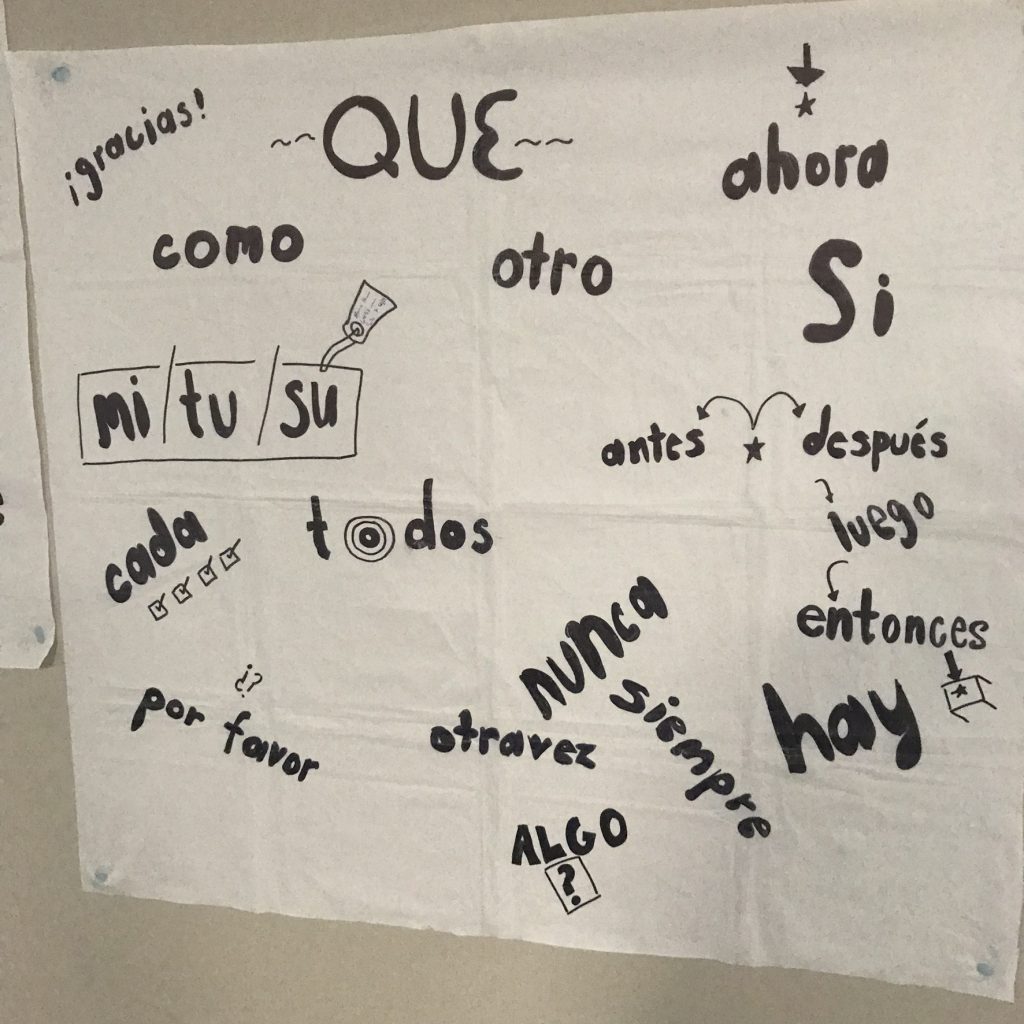 ¡gracias!
~~QUE~~
ahora
como
otro
Si
mi/tu/su
antes
después
luego
cada
todos
entonces
nunca
siempre
hay
¿?
por favor
otravez
ALGO
?